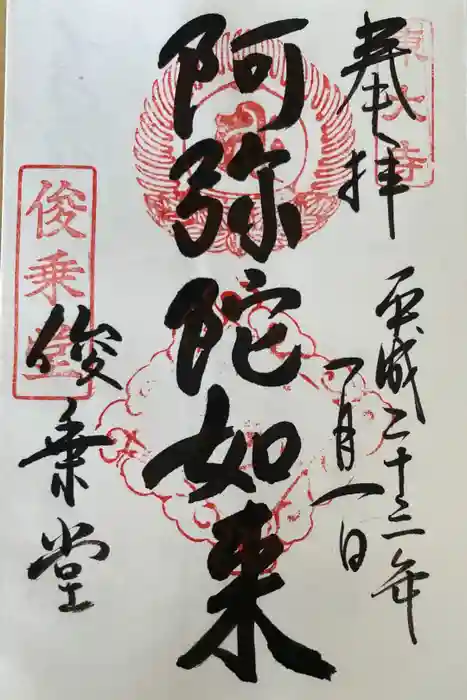 東大寺
奉拝
平成二十三年
一月一日
阿弥陀如来
俊乗堂
俊乗堂